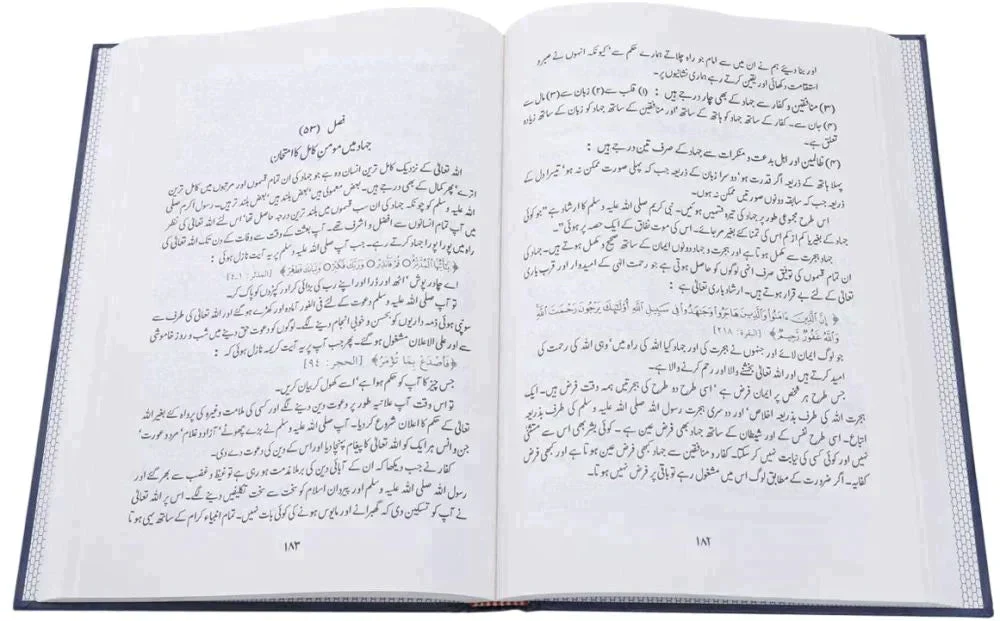 اور بنا دیئے ہم نے ان میں سے امام جو راہ چلاتے ہمارے حکم سے‘ کیونکہ انہوں نے صبر و
استقامت دکھائی اور یقین کرتے رہے ہماری نشانیوں پر۔
(۳) منافقین و کفار سے جہاد کے بھی چار درجے ہیں : (۱) قلب سے (۲) زبان سے (۳) مال سے
(۴) جان سے۔ کفار کے ساتھ جہاد کو ہاتھ کے ساتھ‘ اور منافقین کے ساتھ جہاد کو زبان کے ساتھ زیادہ
تعلق ہے۔
(۴) ظالمین اور اہل بدعت و منکرات سے جہاد کے صرف تین درجے ہیں :
پہلا ہاتھ کے ذریعہ اگر قدرت ہو‘ دوسرا زبان کے ذریعہ جب کہ پہلی صورت ممکن نہ ہو‘ تیسرا دل کے
ذریعہ جب کہ سابقہ دونوں صورتیں ممکن نہ ہوں۔
اس طرح مجموعی طور پر جہاد کی تیرہ قسمیں ہوئیں۔ نبی کریم صلی اللہ علیہ وسلم کا ارشاد ہے ”جو کوئی
جہاد کے بغیر یا کم از کم اس کی تمنا کئے بغیر مر جائے۔ اس کی موت نفاق کے ایک حصہ پر ہوئی“۔
جہاد ہجرت سے مکمل ہوتا ہے اور ہجرت و جہاد دونوں ایمان کے ساتھ صحیح و مکمل ہوتے ہیں۔ جہاد کی
ان تمام قسموں کی توفیق صرف انہی لوگوں کو حاصل ہوتی ہے جو رحمت الٰہی کے امیدوار اور قرب باری
تعالیٰ کے لئے بے قرار ہوتے ہیں۔ ارشاد باری تعالیٰ ہے :
﴿ إِنَّ الَّذِينَ ءَامَنُوا وَالَّذِينَ هَاجَرُوا وَجَاهَدُوا فِي سَبِيلِ اللَّهِ أُولَٰئِكَ يَرْجُونَ رَحْمَتَ اللَّهِ
وَاللَّهُ غَفُورٌ رَّحِيمٌ ﴾ [البقرة: ٢١٨]
جو لوگ ایمان لائے اور جنہوں نے ہجرت کی اور جہاد کیا اللہ کی راہ میں‘ وہی اللہ کی رحمت کی
امید کرتے ہیں اور اللہ تعالیٰ بخشنے والا اور رحم کرنے والا ہے۔
جس طرح ہر شخص پر ایمان فرض ہے‘ اسی طرح دو طرح کی ہجرتیں ہمہ وقت فرض ہیں۔ ایک
ہجرت اللہ کی طرف بذریعہ اخلاص‘ اور دوسری ہجرت رسول اللہ صلی اللہ علیہ وسلم کی طرف بذریعہ
اتباع۔ اسی طرح نفس کے اور شیطان کے ساتھ جہاد بھی فرض عین ہے۔ کوئی بشر بھی اس سے مستثنیٰ
نہیں اور کوئی کسی کی نیابت نہیں کر سکتا۔ کفار و منافقین سے جہاد کبھی فرض عین ہوتا ہے اور کبھی فرض
کفایہ۔ اگر ضرورت کے مطابق لوگ اس میں مشغول رہے تو باقی پر فرض نہیں ہوتا۔
۱۸۲
فصل (۵۳)
جہاد میں مومن کامل کا امتحان
اللہ تعالیٰ کے نزدیک کامل ترین انسان وہ ہے جو جہاد کی ان تمام قسموں اور مرتبوں میں کامل ترین
اترے‘ پھر کمال کے بھی درجے ہیں۔ بعض معمولی ہیں‘ بعض بلند‘ بعض بلند تر ہیں۔ رسول اکرم صلی
اللہ علیہ وسلم کو چونکہ جہاد کی ان سب قسموں میں بلند ترین درجہ حاصل تھا‘ اس لئے اللہ تعالیٰ کی نظر
میں آپ تمام انسانوں سے افضل و اشرف تھے۔ آپ بعثت کے وقت سے وفات کے دن تک اللہ تعالیٰ کی
راہ میں پورا پورا جہاد کرتے رہے۔ جب آپ صلی اللہ علیہ وسلم پر یہ آیت نازل ہوئی :
﴿ يَا أَيُّهَا الْمُدَّثِّرُ ○ قُمْ فَأَنذِرْ ○ وَرَبَّكَ فَكَبِّرْ ○ وَثِيَابَكَ فَطَهِّرْ ﴾ [المدثر: ١۔٤]
اے چادر پوش‘ اٹھ اور ڈرا اور اپنے رب کی بڑائی کر اور اپنے کپڑوں کو پاک کر۔
تو آپ صلی اللہ علیہ وسلم دعوت کے لئے فی الفور آمادہ اور کھڑے ہو گئے اور اللہ تعالیٰ کی طرف سے
سونپی ہوئی ذمہ داریوں کو بحسن و خوبی انجام دینے لگے۔ لوگوں کو دعوت حق دینے میں شب و روز خاموشی
سے اور علی الاعلان مشغول ہو گئے۔ پھر جب آپ پر یہ آیت کریمہ نازل ہوئی کہ :
﴿ فَاصْدَعْ بِمَا تُؤْمَرُ ﴾ [الحجر: ٩٤]
جس چیز کا آپ کو حکم ہوا ہے‘ اسے کھول کر بیان کریں۔
تو اس وقت آپ علانیہ طور پر دعوت دین دینے لگے اور کسی کی ملامت وغیرہ کی پرواہ کئے بغیر اللہ
تعالیٰ کے حکم کا اعلان شروع کر دیا۔ آپ صلی اللہ علیہ وسلم نے بڑے چھوٹے‘ آزاد و غلام‘ مرد و عورت‘
جن و انس ہر ایک کو اللہ تعالیٰ کا پیغام پہنچا دیا اور اس کے دین کی دعوت دے دی۔
کفار نے جب دیکھا کہ ان کے آبائی دین کی برملا مذمت ہو رہی ہے تو غیظ و غضب سے بھر گئے اور
رسول اللہ صلی اللہ علیہ وسلم اور پیروان اسلام کو سخت سے سخت تکلیفیں دینے لگے۔ اس پر اللہ تعالیٰ
نے آپ کو تسکین دی کہ گھبرانے اور مایوس ہونے کی کوئی بات نہیں۔ تمام انبیاء کرام کے ساتھ یہی ہوتا
۱۸۳